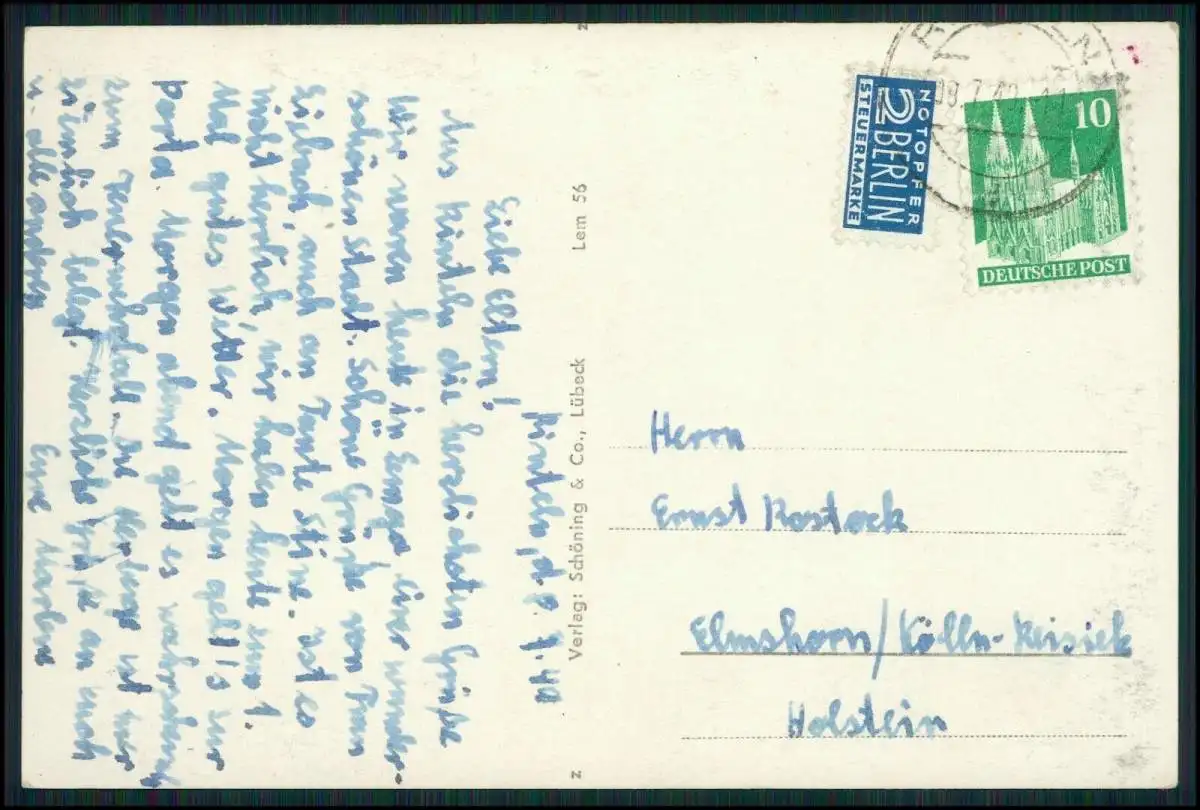 Künteln, d. 8. 7. 49
Liebe Eltern!
Aus Künteln die herzlichsten Grüße
Wir waren heute in Lemgo einer wunder-
schönen Stadt. Schöne Grüße von Frau
Sisbach, auch an Tante Stine. Ist es
nicht herrlich, wir haben heute zum 1.
Mal gutes Wetter. Morgen geht's zur
Porta. Morgen abend geht es
zum ist nur
ziemlich belegt. Herzliche Grüße an euch
u. alle anderen
Eure Marlene
Verlag: Schöning & Co., Lübeck
Lem 56
z
z
NOTOPFER
2 BERLIN
STEUERMARKE
10
DEUTSCHE POST
Herrn
Ernst Rostock
Elmshorn/Kölln-Reisiek
Holstein